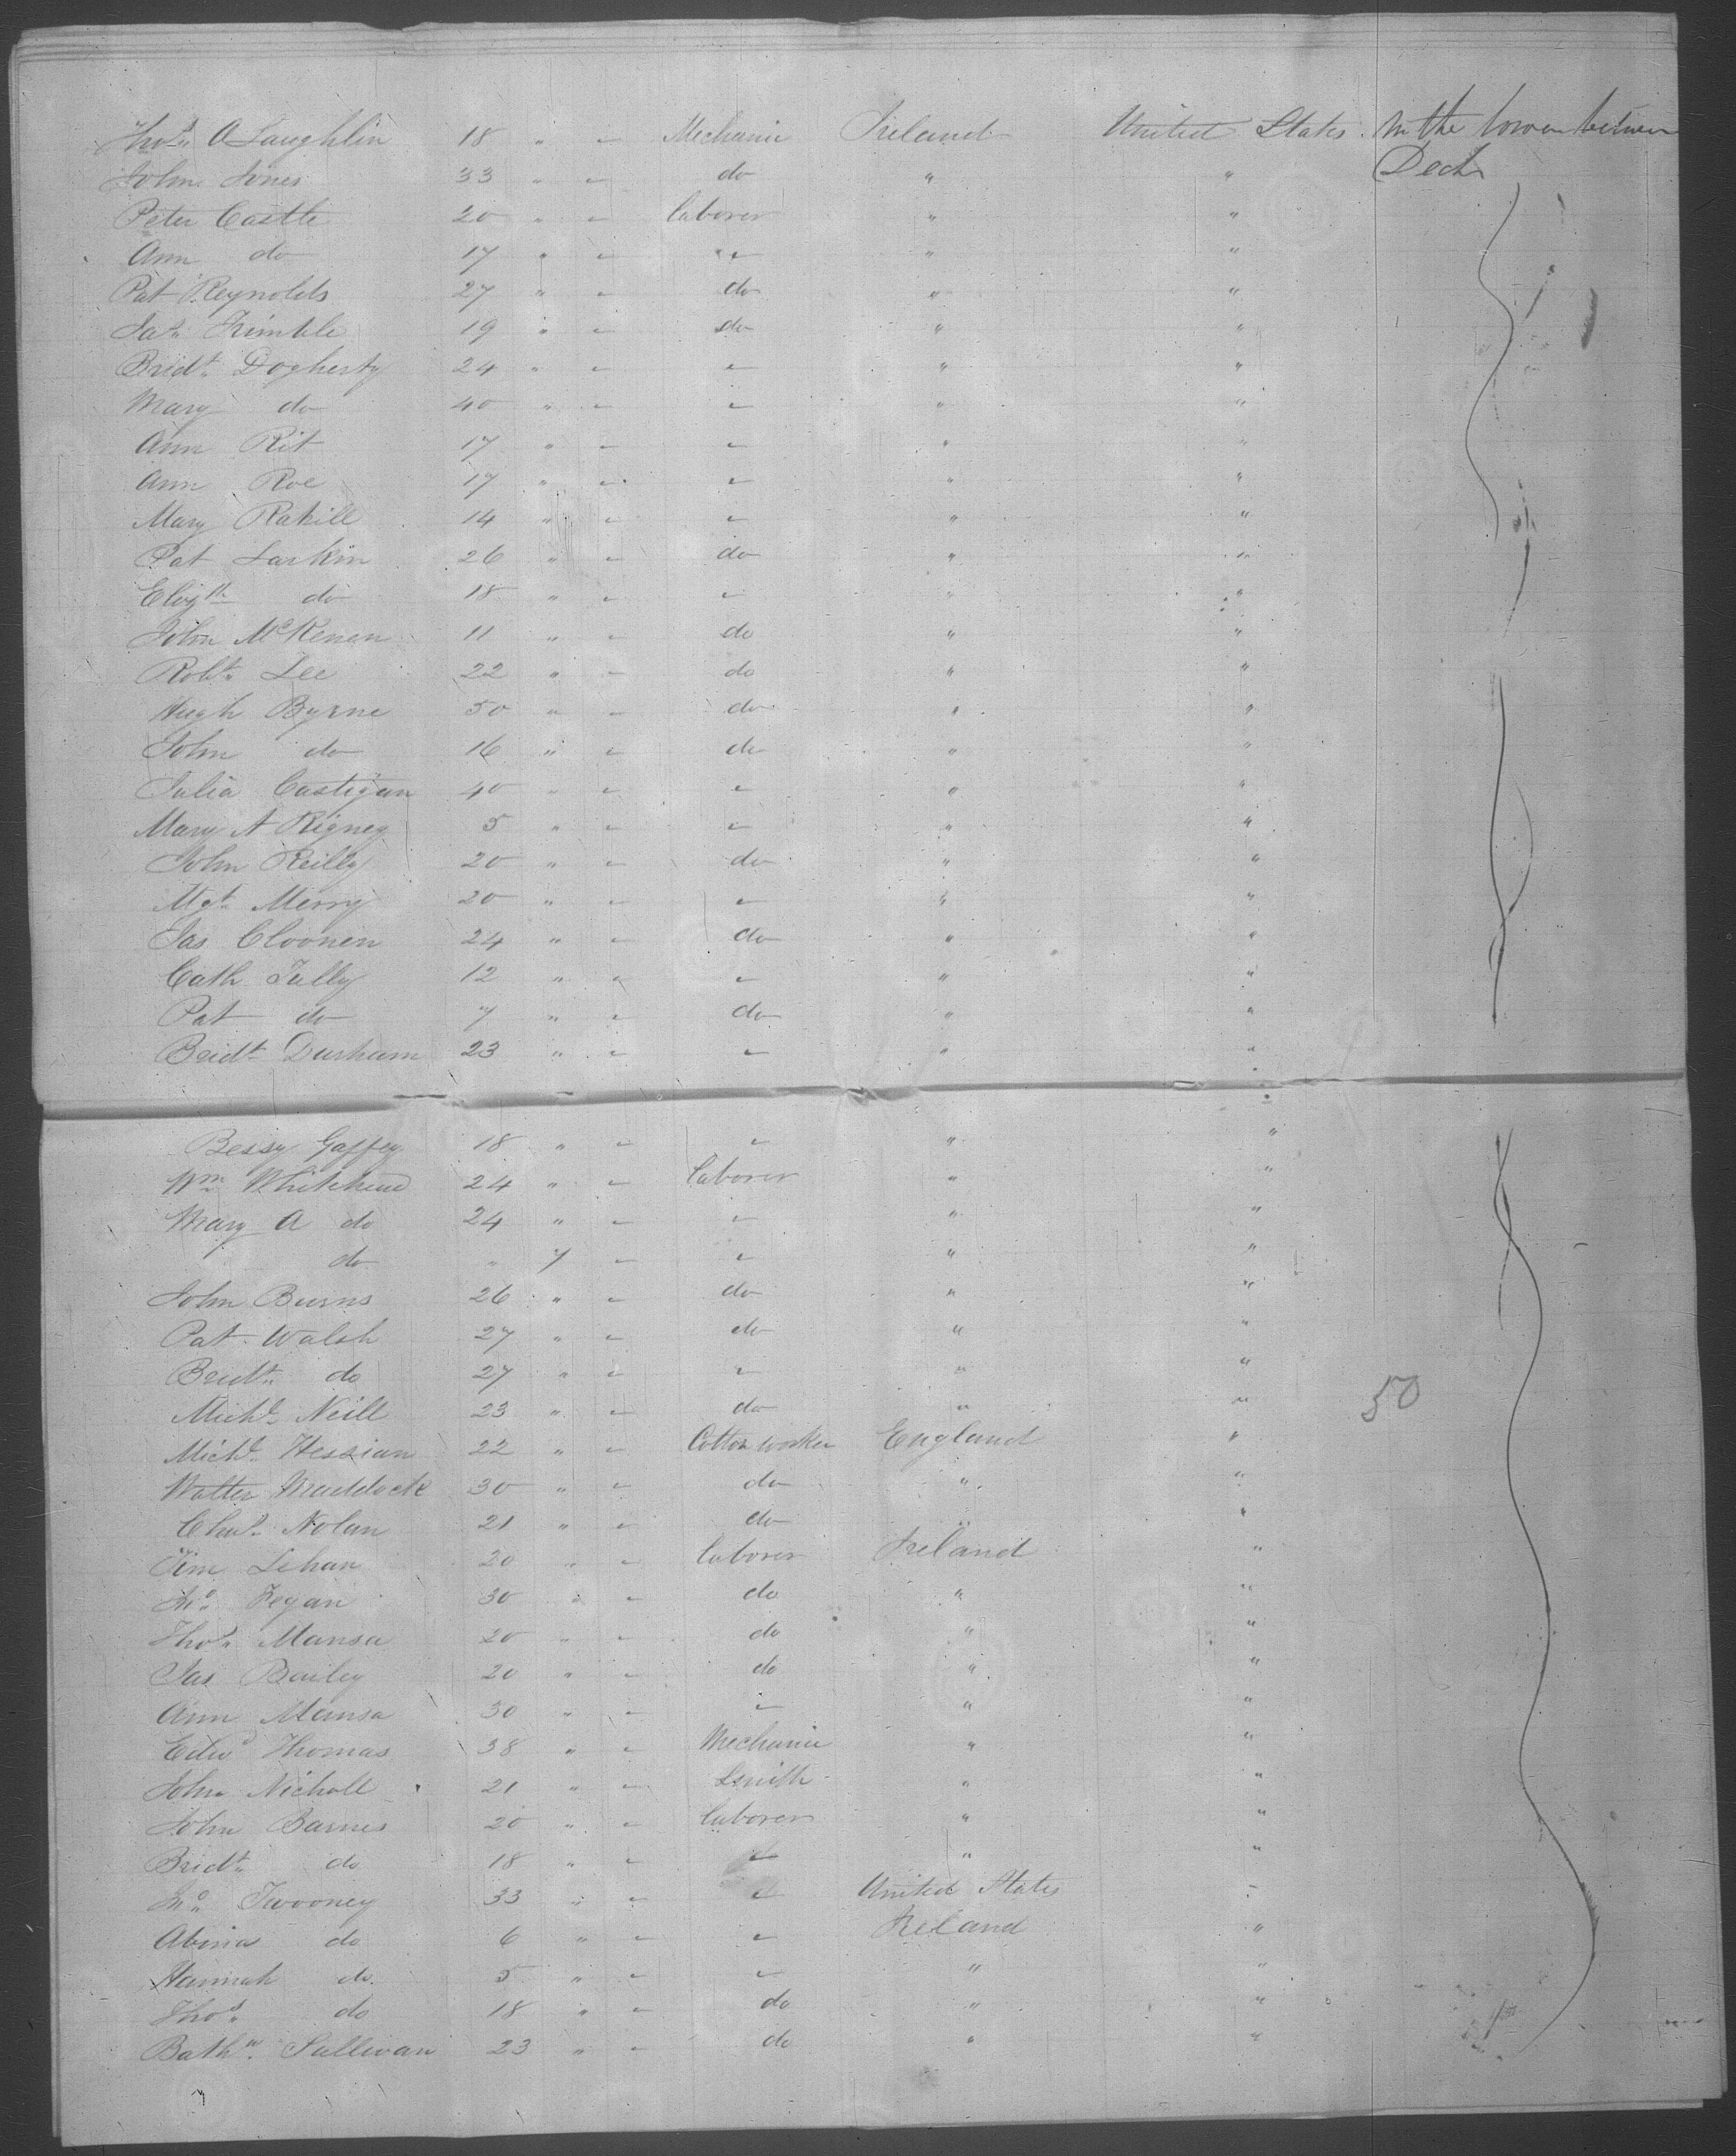 Thos. O Laughlin 18 " - Mechanic Ireland United States In the lower between
John Jones 33 " - do " " Deck
Peter Castle 20 " - laborer " "
Ann do 17 " - - " "
Pat Reynolds 27 " - do " "
Jas. Trimble 19 " - do " "
Bridt. Dogherty 24 " - - " "
Mary do 40 " - - " "
Ann Rit 17 " - - " "
Ann Roe 17 " - - " "
Mary Rahill 14 " - - " "
Pat Larkin 26 " - do " "
Elizth do 18 " - - " "
John McKenen 11 " - do " "
Robt. Lee 22 " - do " "
Hugh Byrne 50 " - do " "
John do 16 " - do " "
Julia Castigan 40 " - - " "
Mary A Rigney 5 " - - " "
John Reilly 20 " - do " "
Mgt. Merry 20 " - - " "
Jas Cloonen 24 " - do " "
Cath Tully 12 " - - " "
Pat do 7 " - do " "
Bridt. Durham 23 " - - " "
Bessy Gaffey 18 " - - " "
Wm Whitehead 24 " - laborer " "
Mary A do 24 " - - " "
do " 7 - - " "
John Burns 26 " - do " "
Pat Walsh 27 " - do " "
Bridt. do 27 " - - " "
Michl. Neill 23 " - do " " 50
Michl. Hessian 22 " - Cotton worker England "
Walter Maddock 30 " - do " "
Chas. Nolan 21 " - do " "
Tim Lehan 20 " - laborer Ireland "
Jno. Fegan 30 " - do " "
Thos. Mansa 20 " - do " "
Jas Bailey 20 " - do " "
Ann Mansa 30 " - - " "
Edwd Thomas 38 " - Mechanic " "
John Nicholl 21 " - Smith " "
John Barnes 20 " - laborer " "
Bridt. do 18 " - - " "
Jno. Twooney 33 " - - United States "
Abina do 6 " - - Ireland "
Hannah do 5 " - - " "
Thos. do 18 " - do " "
Bathw. Sullivan 23 " - do " "